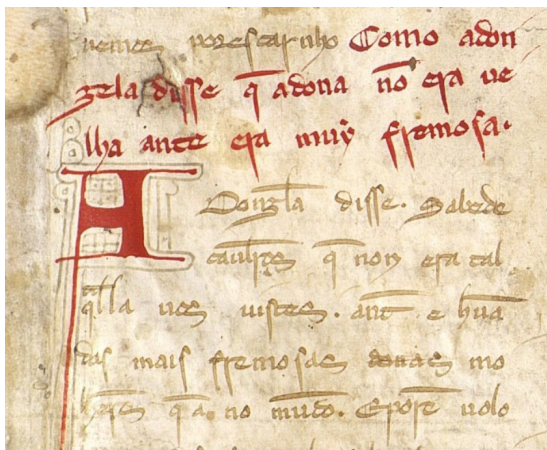 uemes por escarnho Como adon
zela disse q̄ adona nō era ue
lha ante era muy̆ fremosa.
A Donzl̄a disse. Sabede
caul̄rs q̄ non era tal
q̄lla ues uistes. ant̄ e hūa
das mais fremosas donas mo
q̄ a. no mūdo. E porē uolo